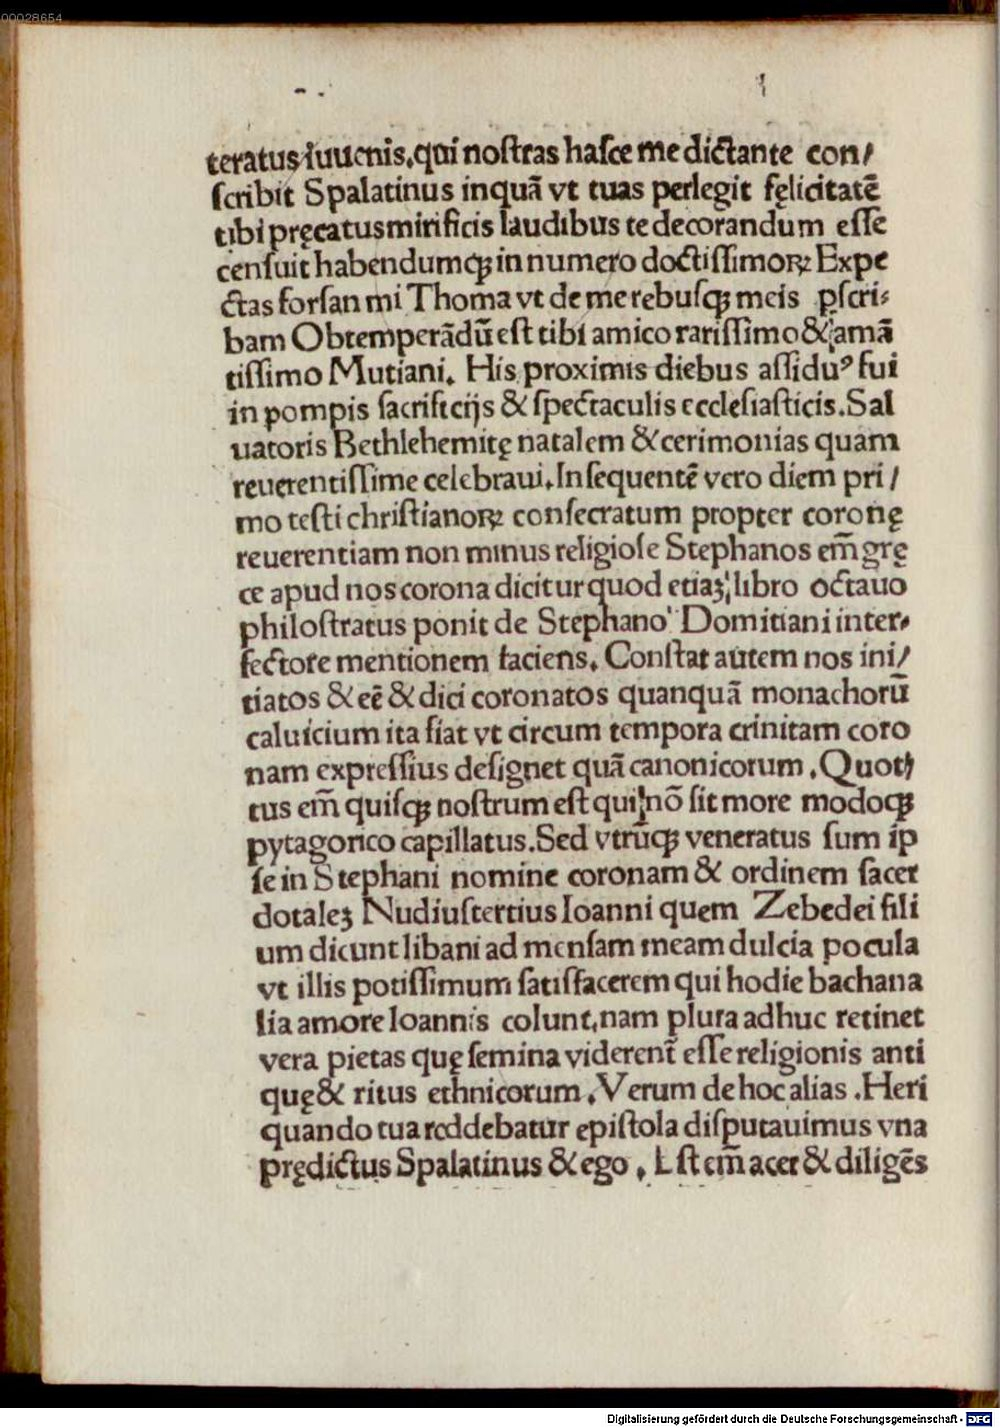 00028654
teratus iuuenis.qui nostras hasce me dictante con/
scribit Spalatinus inquā vt tuas perlegit fęlicitatē
tibi pręcatus mirificis laudibus te decorandum esse
censuit habendumqꝫ in numero doctissimoꝝ Expe
ctas forsan mi Thoma vt de me rebusqꝫ meis ꝑscri⸗
bam Obtemperādū est tibi amico rarissimo & amā
tissimo Mutiani. His proximis diebus assiduꝰ fui
in pompis sacrificijs & spectaculis ecclesiasticis.Sal
uatoris Bethlehemitę natalem & cerimonias quam
reuerentissime celebraui.Insequentē vero diem pri/
mo testi christianoꝝ consecratum propter coronę
reuerentiam non minus religiose Stephanos em̄ grę
ce apud nos corona dicitur quod etiaꝫ libro octauo
philostratus ponit de Stephano Domitiani inter⸗
fectore mentionem faciens. Constat autem nos ini/
tiatos & eē & dici coronatos quanquā monachorū
caluicium ita fiat vt circum tempora crinitam coro
nam expressius designet quā canonicorum .Quot/
tus em̄ quisqꝫ nostrum est qui nō sit more modoqꝫ
pytagorico capillatus.Sed vtrūqꝫ veneratus sum ip
se in Stephani nomine coronam & ordinem sacer
dotaleꝫ Nudiustertius Ioanni quem Zebedei fili
um dicunt libani ad mensam meam dulcia pocula
vt illis potissimum satisfacerem qui hodie bachana
lia amore Ioannis colunt.nam plura adhuc retinet
vera pietas quę semina viderent̄ esse religionis anti
quę & ritus ethnicorum .Verum de hoc alias .Heri
quando tua reddebatur epistola disputauimus vna
prędictus Spalatinus & ego . Est em̄ acer & diligēs
Digitalisierung gefördert durch die Deutsche Forschungsgemeinschaft - DFG